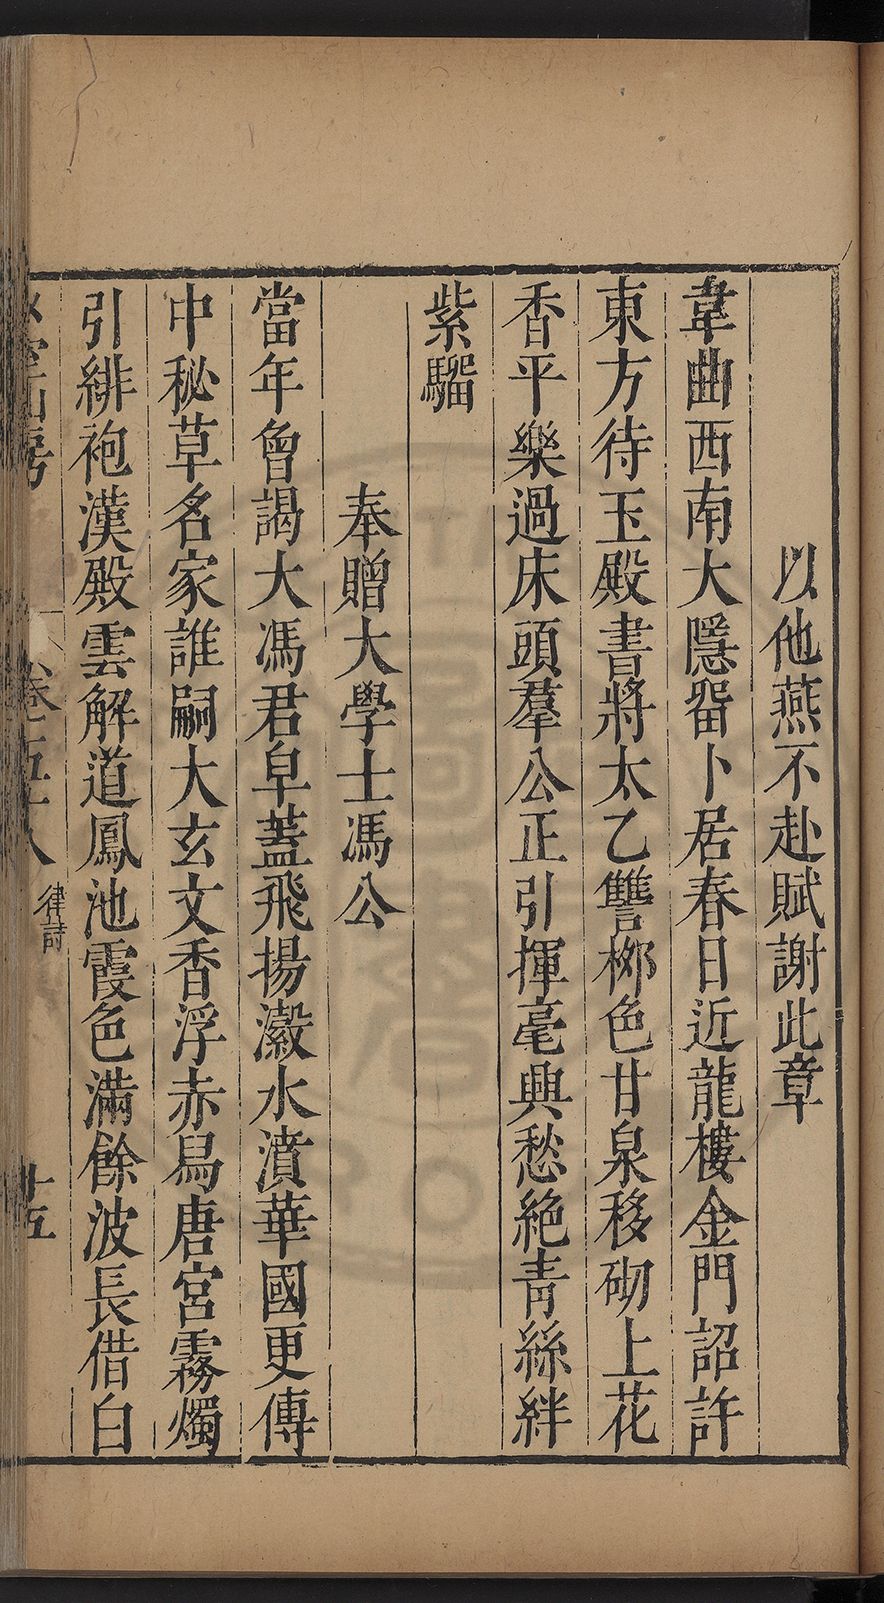 以他燕不赴賦謝此章
韋曲西南大隱畱卜居春日近龍樓金門詔許
東方待玉殿書將太乙讐栁色甘泉移砌上花
香平樂過床頭羣公正引揮毫興愁絕青絲絆
紫騮
奉贈大學士馮公
當年曾謁大馮君皁蓋飛揚瀫水濆華國更傳
中秘草名家誰嗣大玄文香浮赤舄唐宮霧燭
引緋袍漢殿雲解道鳳池霞色滿餘波長借白
室山房
卷五十八
律詩
十五